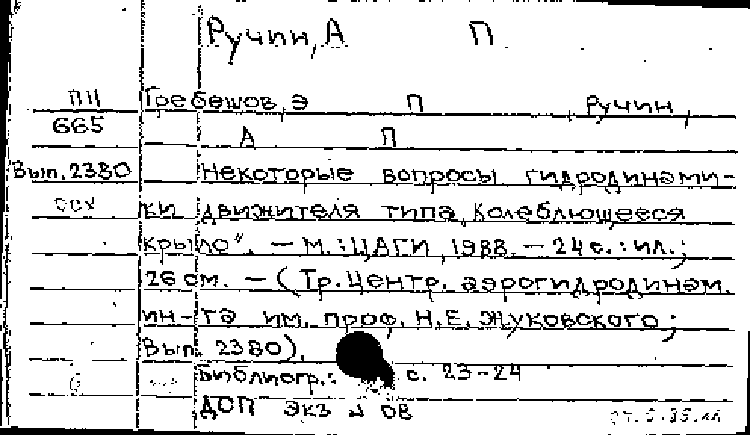 Ручин, А П
ПН Гребешов, Э П, Ручин,
665 А П
Вып. 2380 Некоторые вопросы гидродинами-
ки движителя типа „колеблющееся
крыло". — М.: ЦАГИ, 1988. — 24 с.: ил.;
26 см. — (Тр. Центр. аэрогидродинам.
ин-та им. проф. Н.Е. Жуковского;
Вып. 2380).
Библиогр.: с. 23-24
ДОП ЭКЗ